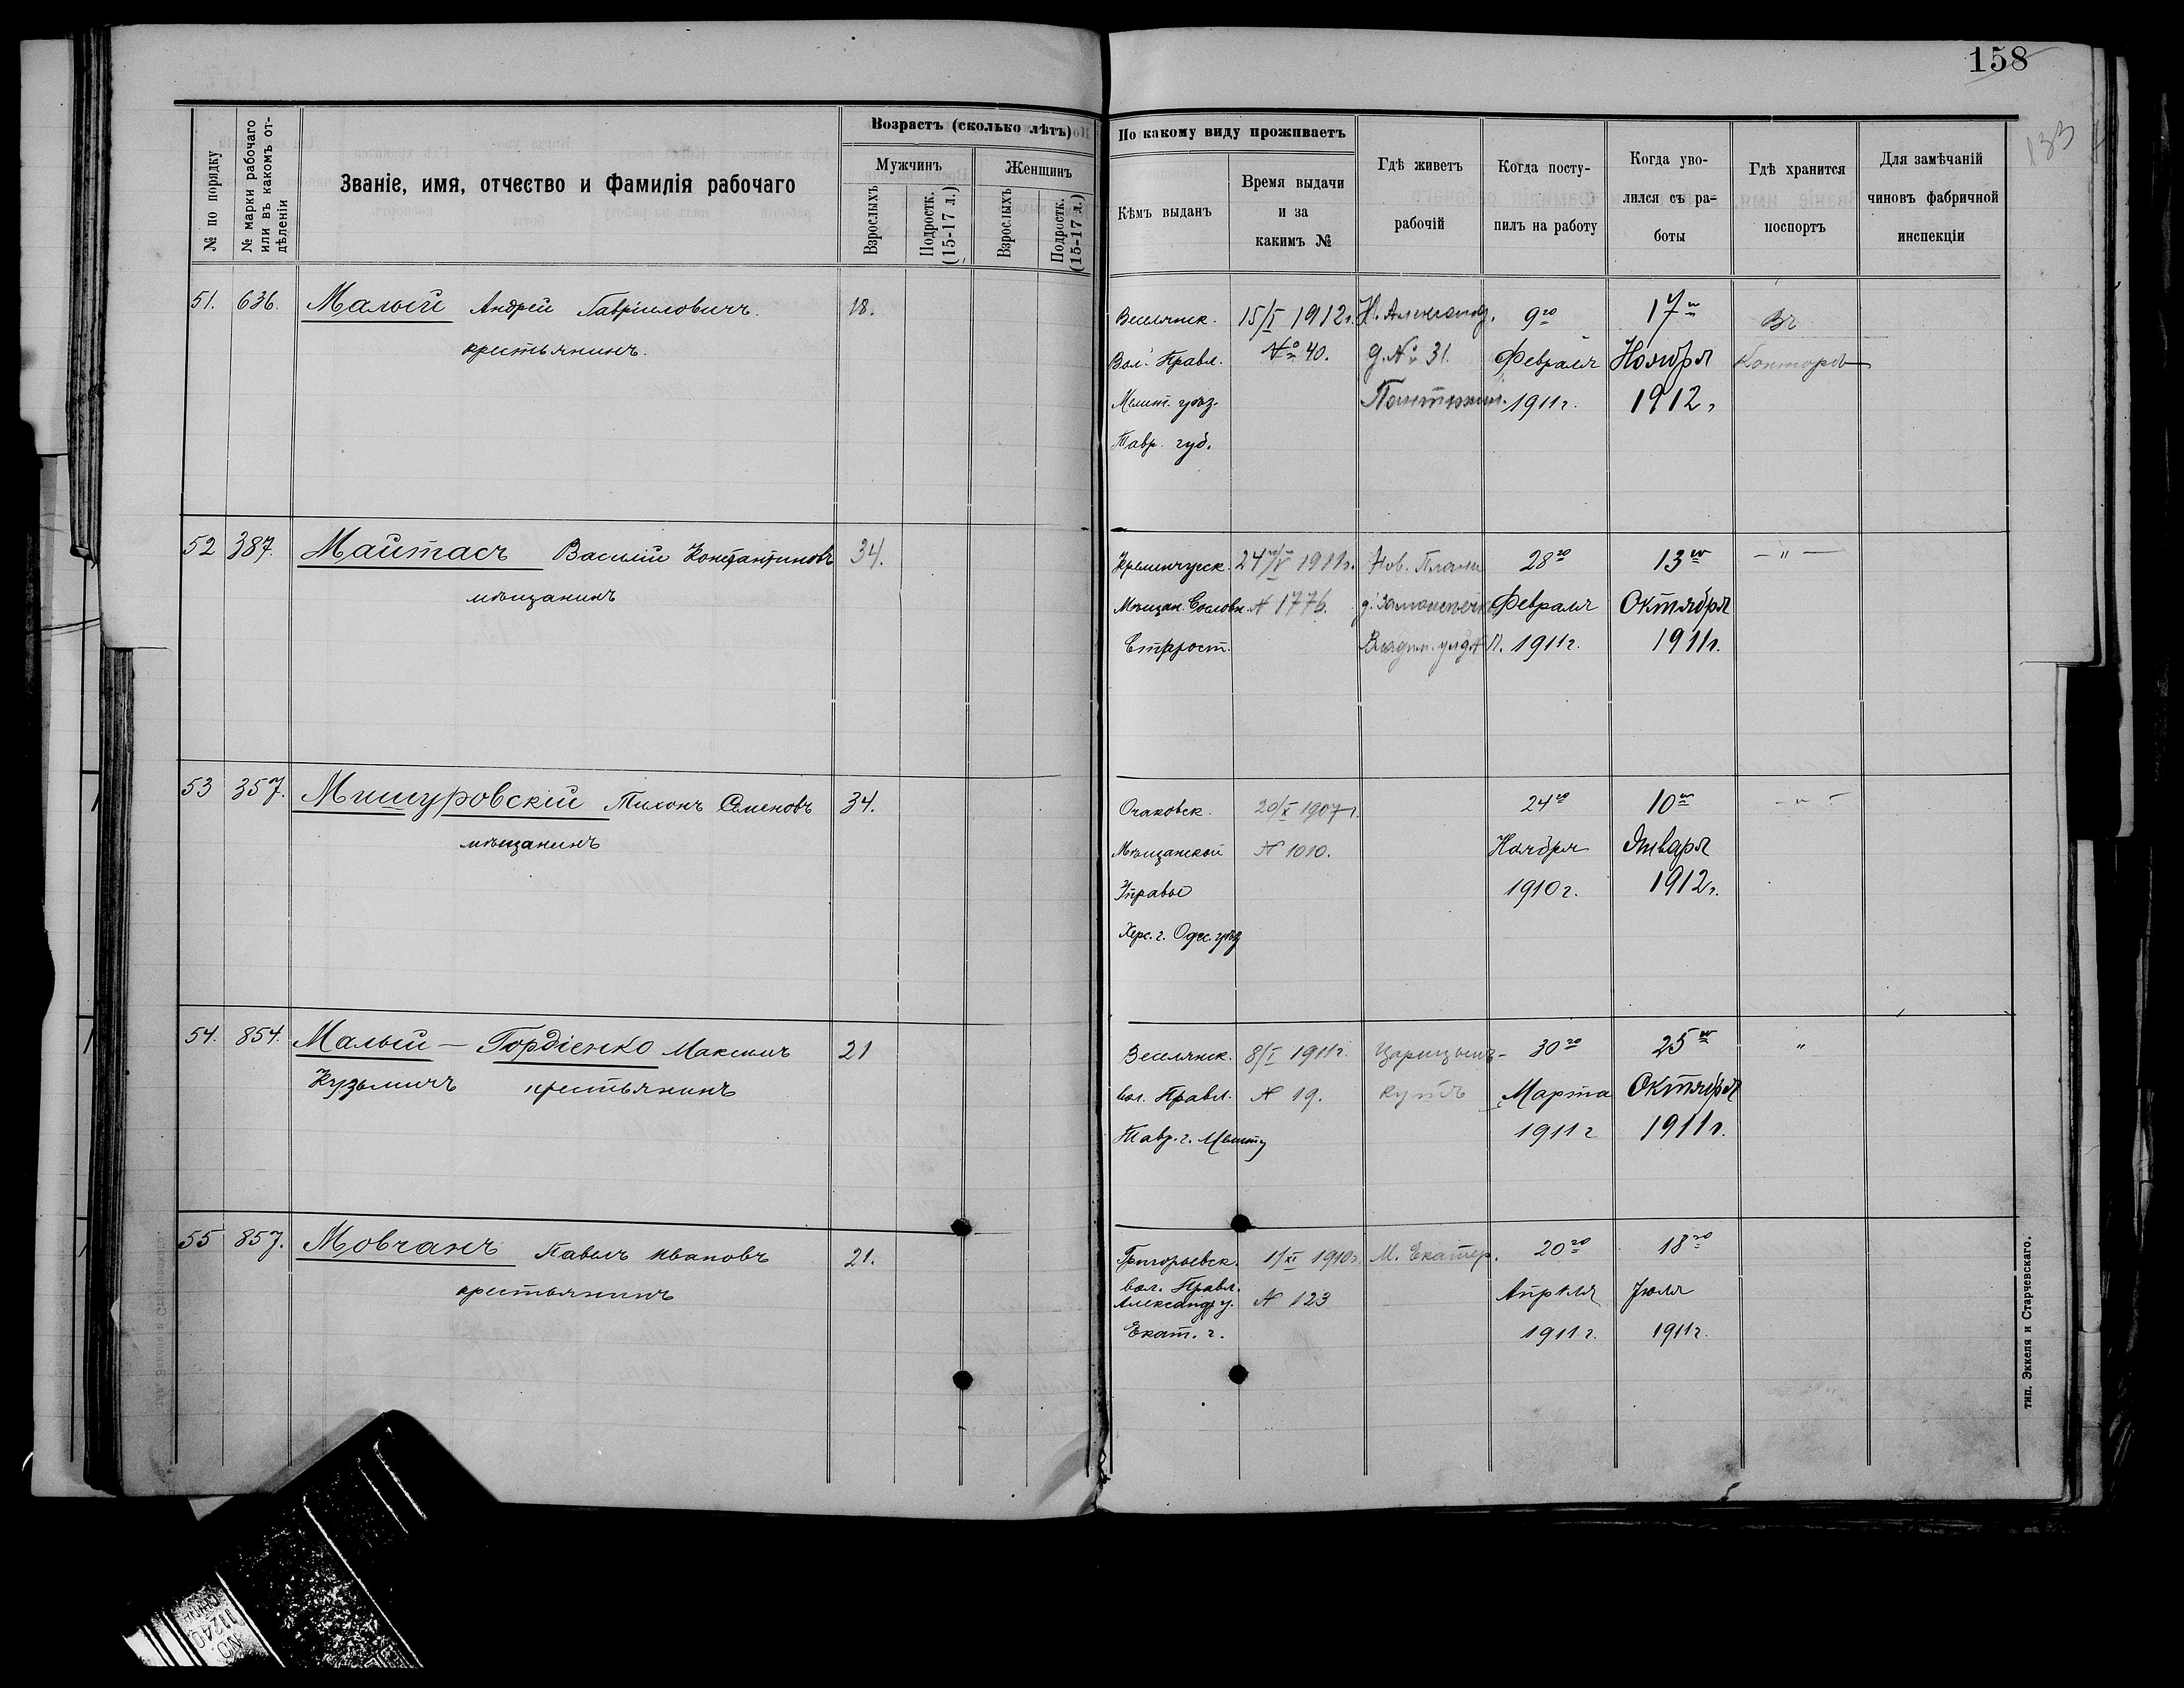 158
133
№ по порядку
№ марки рабочаго
или въ какомъ от-
дѣленіи
Званіе, имя, отчество и фамилія рабочаго
Возрастъ (сколько лѣтъ)
Мужчинъ
Женщинъ
Взрослыхъ
Подростк.
(15-17 л.)
Взрослыхъ
Подростк.
(15-17 л.)
По какому виду проживаетъ
Кѣмъ выданъ
Время выдачи
и за
какимъ №
Гдѣ живетъ
рабочій
Когда посту-
пилъ на работу
Когда уво-
лился съ ра-
боты
Гдѣ хранится
поспортъ
Для замѣчаній
чиновъ фабричной
инспекціи
51. 636. Малый Андрей Гавріиловичъ. 18.
крестьянинъ.
Веселянск.
Вол. Правл.
Мелит. уѣз.
Тавр. губ.
15/I 1912г.
№ 40.
Н. Александ.
д. № 31.
9го
Февраля
1911г.
17го
Ноября
1912г
Въ
Конторѣ
52 387. Майтасъ Василій Константиновъ 34.
мѣщанинъ
Кременчугск.
Мѣщан. Сословн.
Старост.
24/V 1911г.
№ 1776.
Нов. Плани
28го
Февраля
1911г.
13го
Октября
1911г.
— " —
53 357. Мишуровскій Тихонъ Семеновъ 34.
мѣщанинъ
Очаковск.
Мѣщанской
Управы
Херс. г. Одес. уѣз
20/X 1907г.
№ 1010.
24го
Ноября
1910г.
10го
Января
1912г.
- " -
54. 854. Малый — Гордіенко Максимъ 21
Кузьмичъ крестьянинъ
Веселянск.
вол. Правл.
Тавр. г. Мелит у
8/I 1911г.
№ 19.
Царицынъ-
кутъ
30го
Марта
1911г
25го
Октября
1911г.
"
55 857. Мовчанъ Павелъ Ивановъ 21.
крестьянинъ
Григорьевск.
вол. Правл.
Александр у.
Екат. г.
1/XI 1910г.
№ 123
М. Екатер.
20го
Апрѣля
1911г.
18го
Іюля
1911г.
тип. Эккеля и Старчевскаго.